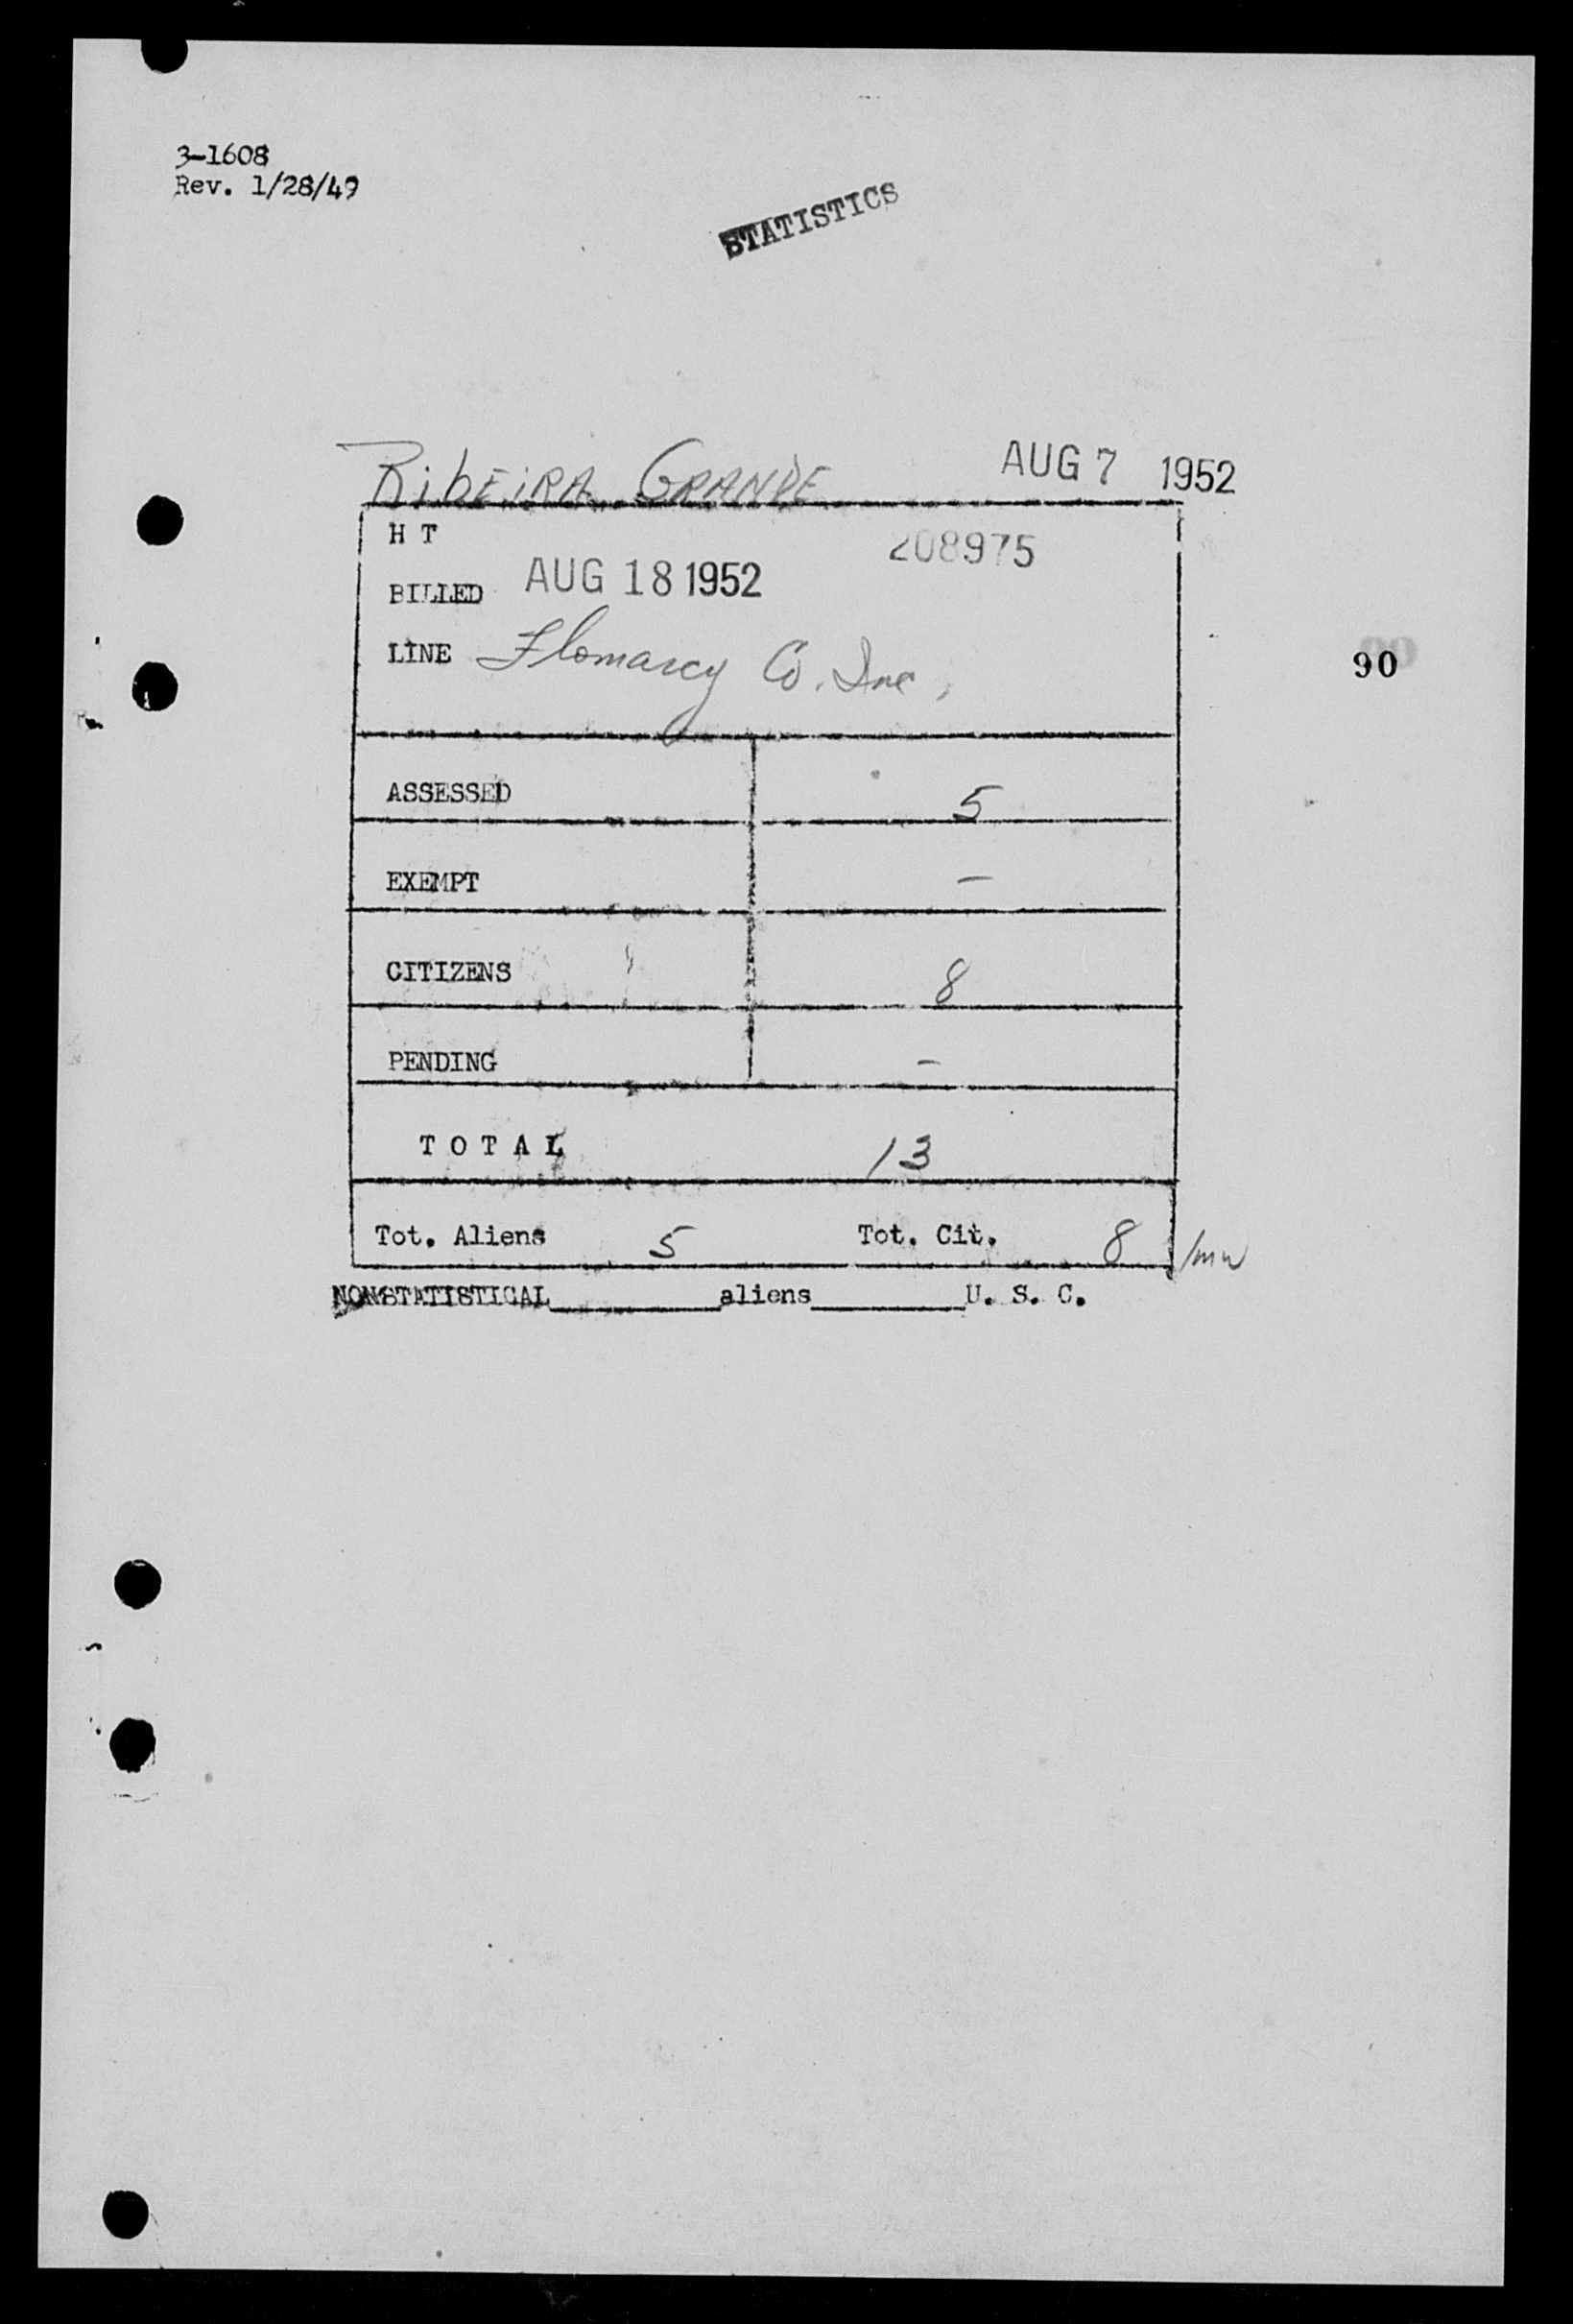 3-1608
Rev. 1/28/49
STATISTICS
RibEiRA GRANDE AUG 7 1952
H T 208975
BILLED AUG 18 1952
LINE Flomarcy Co. Inc.
90
ASSESSED 5
EXEMPT –
CITIZENS 8
PENDING –
T O T A L 13
Tot. Aliens 5 Tot. Cit. 8
NONSTATISTICAL________aliens________U. S. C.